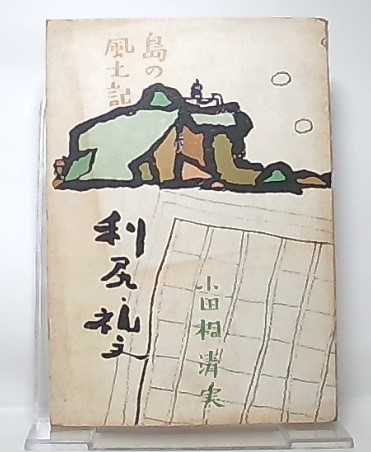 島の
風土記
利尻・礼文
小田桐清実